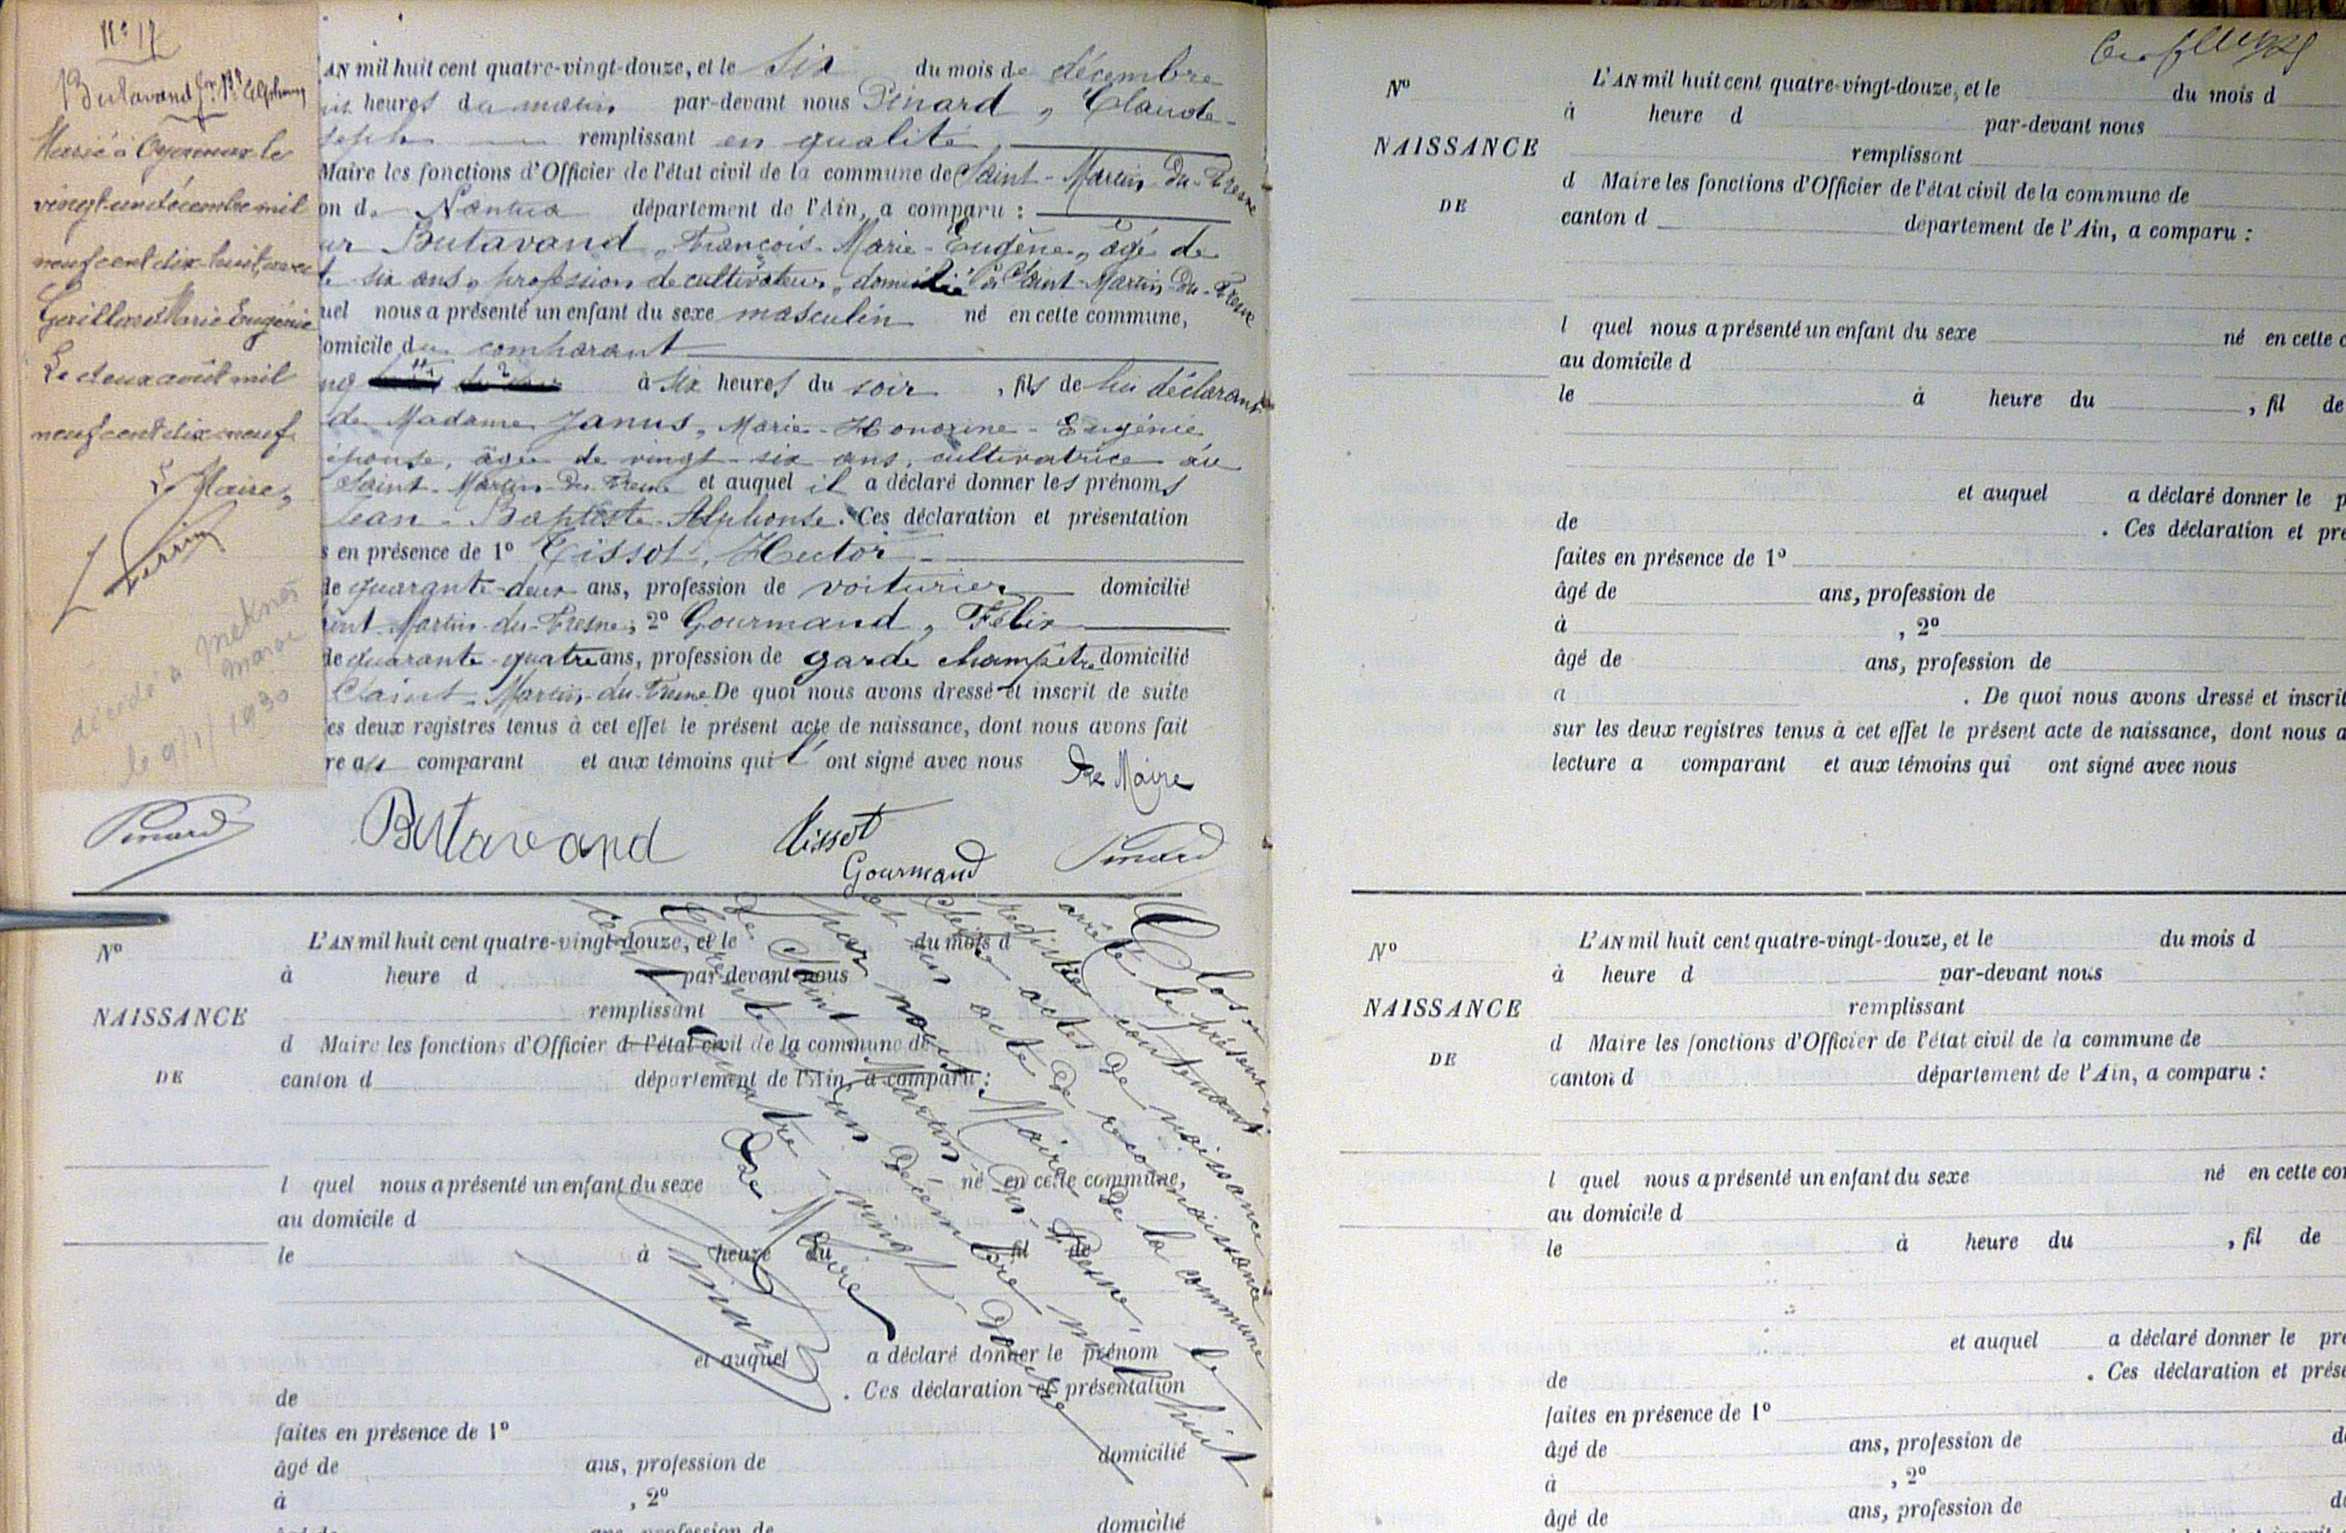 N° 17
Butavand Jn Bte Alphonse
Marié à Oyonnax le
vingt un décembre mil
neuf cent dix-huit, avec
Marie Eugénie
Le deux août mil
neuf cent dix-neuf
Le Maire,
Perrin
décédé à Meknès
Maroc
le 9/1/1930
AN mil huit cent quatre-vingt-douze, et le six du mois de décembre
heures du matin par-devant nous Pinard, Claude-
seph remplissant en qualité
Maire les fonctions d'Officier de l'état civil de la commune de Saint-Martin-du-Fresne
on de Nantua département de l'Ain, a comparu :
ur Butavand, François-Marie-Eugène, âgé de
te six ans, profession de cultivateur, domicilié à Saint-Martin-du-Fresne
quel nous a présenté un enfant du sexe masculin né en cette commune,
domicile du comparant
nq à six heures du soir, fils de lui déclarant
de Madame Janus, Marie-Honorine-Eugénie,
épouse, âgée de vingt-six ans, cultivatrice au
Saint-Martin-du-Fresne et auquel il a déclaré donner les prénoms
Jean-Baptiste-Alphonse. Ces déclaration et présentation
s en présence de 1° Tissot, Hector
de quarante-deux ans, profession de voiturier domicilié
aint-Martin-du-Fresne, 2° Gourmand, Félix
de quarante-quatre ans, profession de garde champêtre domicilié
Saint-Martin-du-Fresne. De quoi nous avons dressé et inscrit de suite
es deux registres tenus à cet effet le présent acte de naissance, dont nous avons fait
re au comparant et aux témoins qui l' ont signé avec nous
Le Maire
Pinard
Butavand
Tissot
Gourmand
Pinard
Clos et
arrêté le présent
registre contenant
actes de naissance
et un acte de reconnaissance
par nous Maire de la commune
de Saint Martin-du-Fresne, le
trente un décembre mil huit
cent quatre-vingt-douze
Le Maire
Pinard
N°
NAISSANCE
DE
L'AN mil huit cent quatre-vingt-douze, et le du mois d
à heure d par-devant nous
remplissant
d Maire les fonctions d'Officier de l'état civil de la commune de
canton d département de l'Ain, a comparu :
l quel nous a présenté un enfant du sexe né en cette commune,
au domicile d
le à heure du , fil de
et auquel a déclaré donner le prénom
de . Ces déclaration et présentation
faites en présence de 1°
âgé de ans, profession de domicilié
à , 2°
âgé de ans, profession de domicilié
N°
NAISSANCE
DE
L'AN mil huit cent quatre-vingt-douze, et le du mois d
à heure d par-devant nous
remplissant
d Maire les fonctions d'Officier de l'état civil de la commune de
canton d département de l'Ain, a comparu :
l quel nous a présenté un enfant du sexe né en cette c
au domicile d
le à heure du , fil de
et auquel a déclaré donner le p
de . Ces déclaration et pré
faites en présence de 1°
âgé de ans, profession de
à , 2°
âgé de ans, profession de
a . De quoi nous avons dressé et inscrit
sur les deux registres tenus à cet effet le présent acte de naissance, dont nous a
lecture a comparant et aux témoins qui ont signé avec nous
N°
NAISSANCE
DE
L'AN mil huit cent quatre-vingt-douze, et le du mois d
à heure d par-devant nous
remplissant
d Maire les fonctions d'Officier de l'état civil de la commune de
canton d département de l'Ain, a comparu :
l quel nous a présenté un enfant du sexe né en cette com
au domicile d
le à heure du , fil de
et auquel a déclaré donner le pré
de . Ces déclaration et prése
faites en présence de 1°
âgé de ans, profession de d
à , 2°
âgé de ans, profession de d